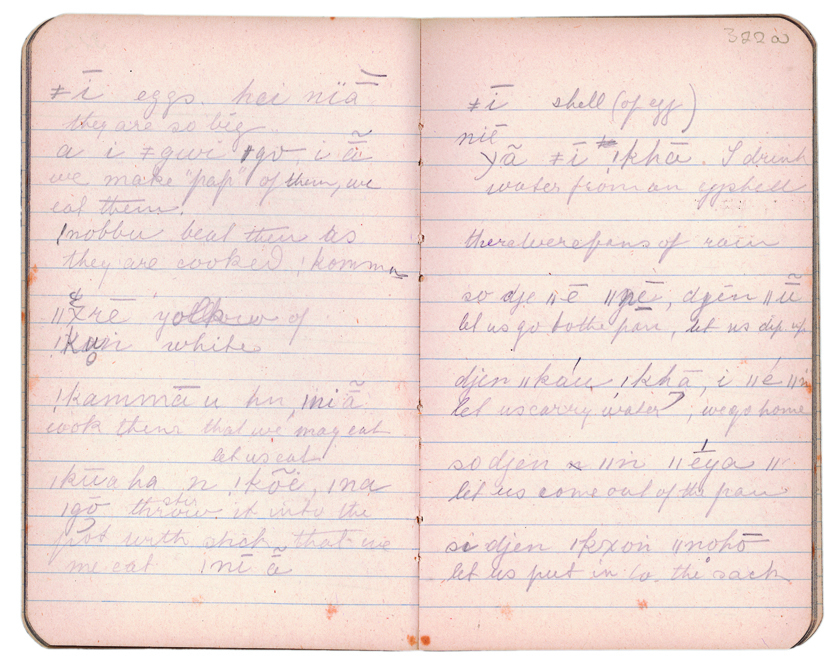 ≠ī eggs. hei nïā
they are so big
a i ≠gwi ǀgo, i ā̃
we make "pap" of them, we
eat them.
ǀnobbu beat them as
they are cooked ǀkomma
ǁxrē yolk of
ǀkui white
ǀkammā u hu, ǀniā̃
cook them that we may eat
let us eat
ǀkūa ha n ǀkõë, ǀna
stir
ǀgō throw it into the
pot with stick that we
me eat ǀnī ā̃
322a
≠ī shell (of egg)
niē
yã ≠ī ǀkhā. I drink
water from an eggshell
there were pans of rain
so dje ǁē ǁpē, djen ǁũ
let us go to the pan, let us dip up
djen ǁkáu ǀkhā, i ǁé ǁn
let us carry water, we go home
so djen ǁin ǁēya ǁ
let us come out of the pan
si djen ǀkxoi ǁnohō
let us put in to the sack